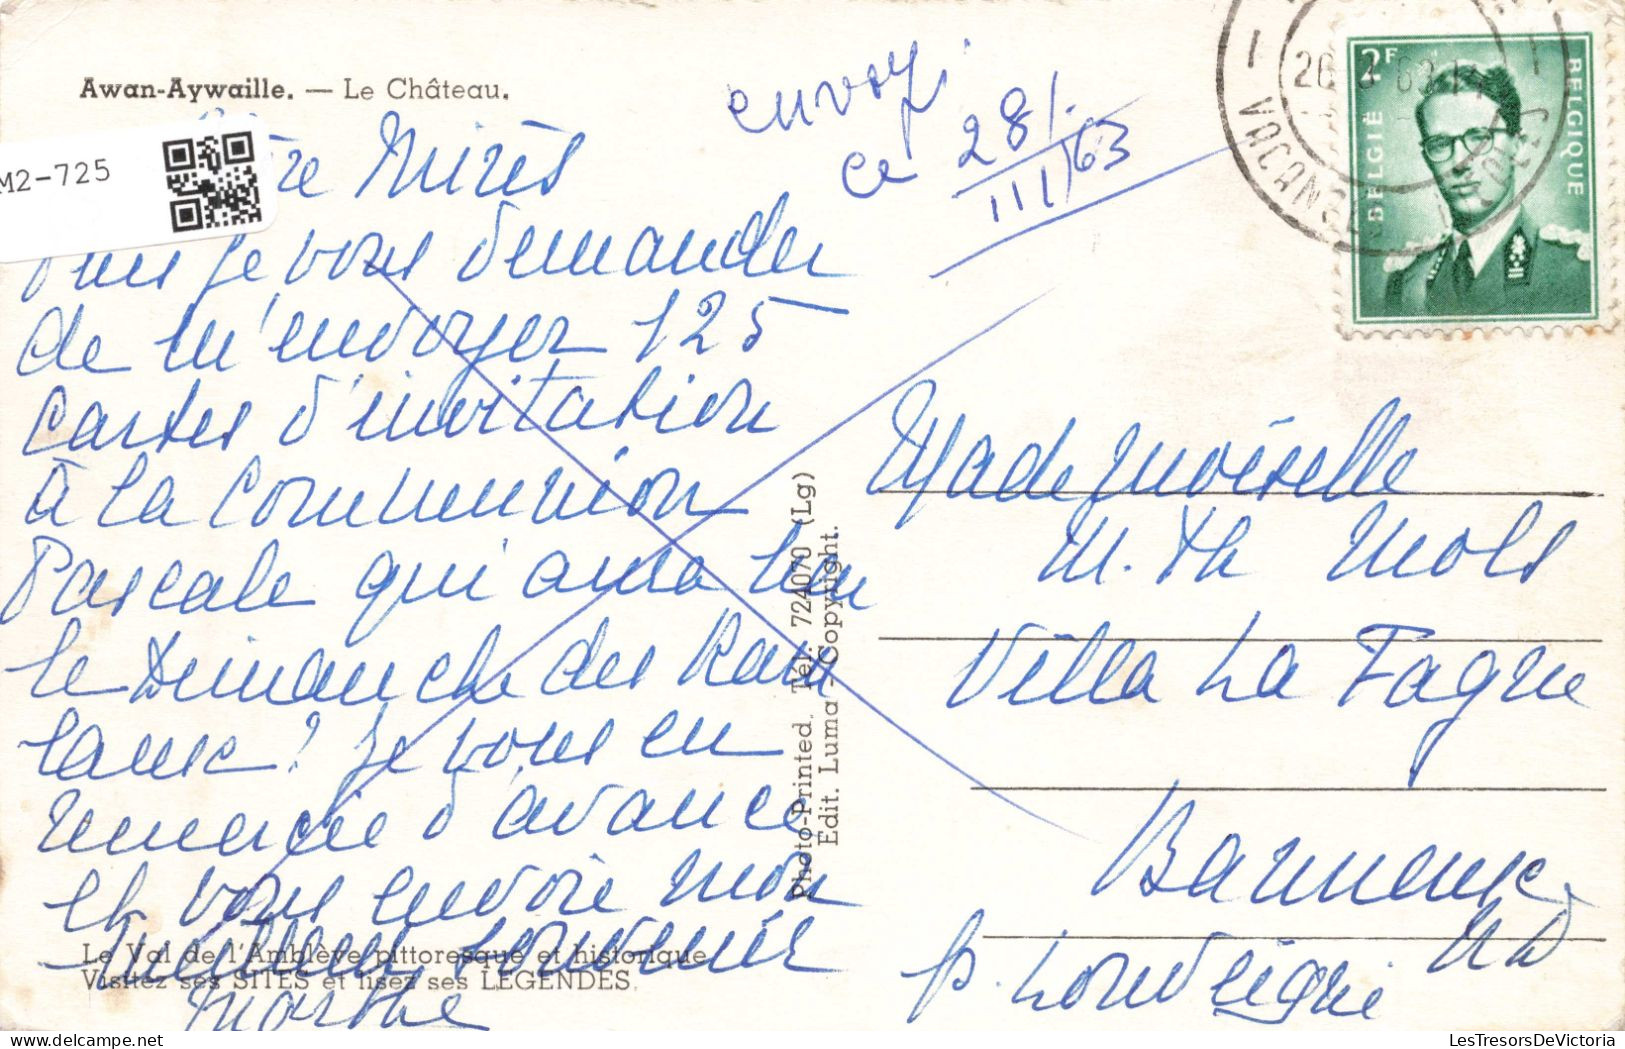 Awan-Aywaille. — Le Château.
M2-725
envoyé
ce 28/
III/63
2F
BELGIË
BELGIQUE
VACANCES
puis je vous demander
de m'envoyer 125
Cartes d'invitation
à la Communion
Pascale qui aura lieu
le Dimanche des Ra
? Je vous en
remercie d'avance
et vous envoie mon
meilleur souvenir
Marthe
Photo-Printed. Tél. 724070 (Lg)
Edit. Luma - Copyright.
Mademoiselle
M. Th Mols
Villa La Fagne
Banneux
N D
p. Louveigné
Le Val de l'Amblève pittoresque et historique
Visitez ses SITES et lisez ses LEGENDES.
LesTresorsDeVictoria